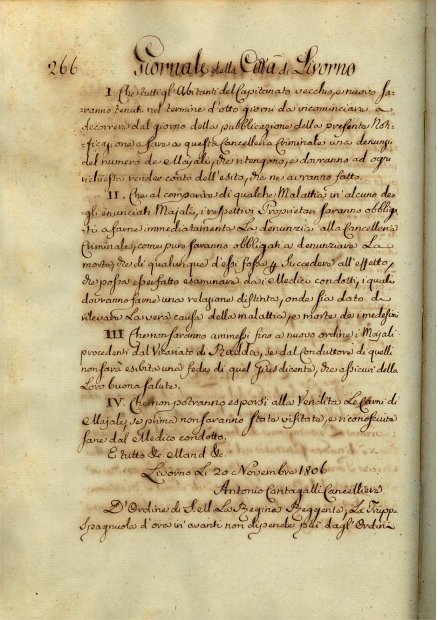 266 Giornale della Città di Livorno
I. Che tutti gl' Abitanti del Capitanato vecchio, e nuovo sa-
ranno tenuti nel termine d'otto giorni da incominciare a
decorrere dal giorno della pubblicazione della presente Not-
ificazione a fare a questa Cancelleria Criminale una denunzi
del numero de Majali, che ritengono, e dovranno ad ogni
richiesta render conto dell'esito, che ne avranno fatto.
II. Che al comparire di qualche Malattia in alcuno de
gli enunciati Majali, i respettivi Proprietari saranno obblig
ti a farne immediatamente La denunzia alla Cancelleria
Criminale, come pure saranno obbligati a denunziare La
morte, che di qualunque d'essi fosse p Succedere all'effetto,
che possa esser fatto esaminare dai Medici condotti, i quali
dovranno farne una relazione distinta, onde sia dato di
rilevare La vera causa della malattia, e morte de i medesimi
III Che non saranno ammessi fino a nuovo ordine i Majali
procedenti dal Vicariato di Radda, se dal conduttore di quelli
non sarà esibita una fede di quel Giusdicente, che assicuri della
Loro buona salute.
IV. Che non potranno esporsi alla Vendita Le Carni di
Majale, se prima non saranno State visitate, e riconosciute
sane dal Medico condotto.
E tutto &c. Mand &c.
Livorno Li 20 Novembre 1806
Antonio Cantagalli Cancelliere
D'Ordine di S. ell La Regina Reggente, La Trupp
Spagnuola d'ora in avanti non dipende più dagl' Ordini